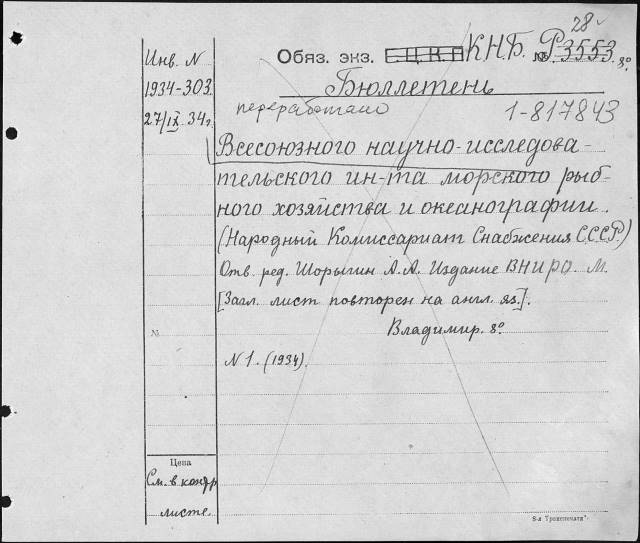 28
Инв. N
1934-303
27/IX 34г.
Обяз. экз. Е.Ц.К.П КНБ. № Р-3553. 8°.
Бюллетень
переработано
1-817843
Всесоюзного научно-исследова-
тельского ин-та морского рыб-
ного хозяйства и океанографии.
(Народный Комиссариат Снабжения СССР)
Отв. ред. Шорыгин А.А. Издание ВНИРО. М.
[Загл. лист повторен на англ. яз.].
Владимир. 8°.
№
N 1. (1934).
Цена
См. в контр
листе.
8-я Транспечати".